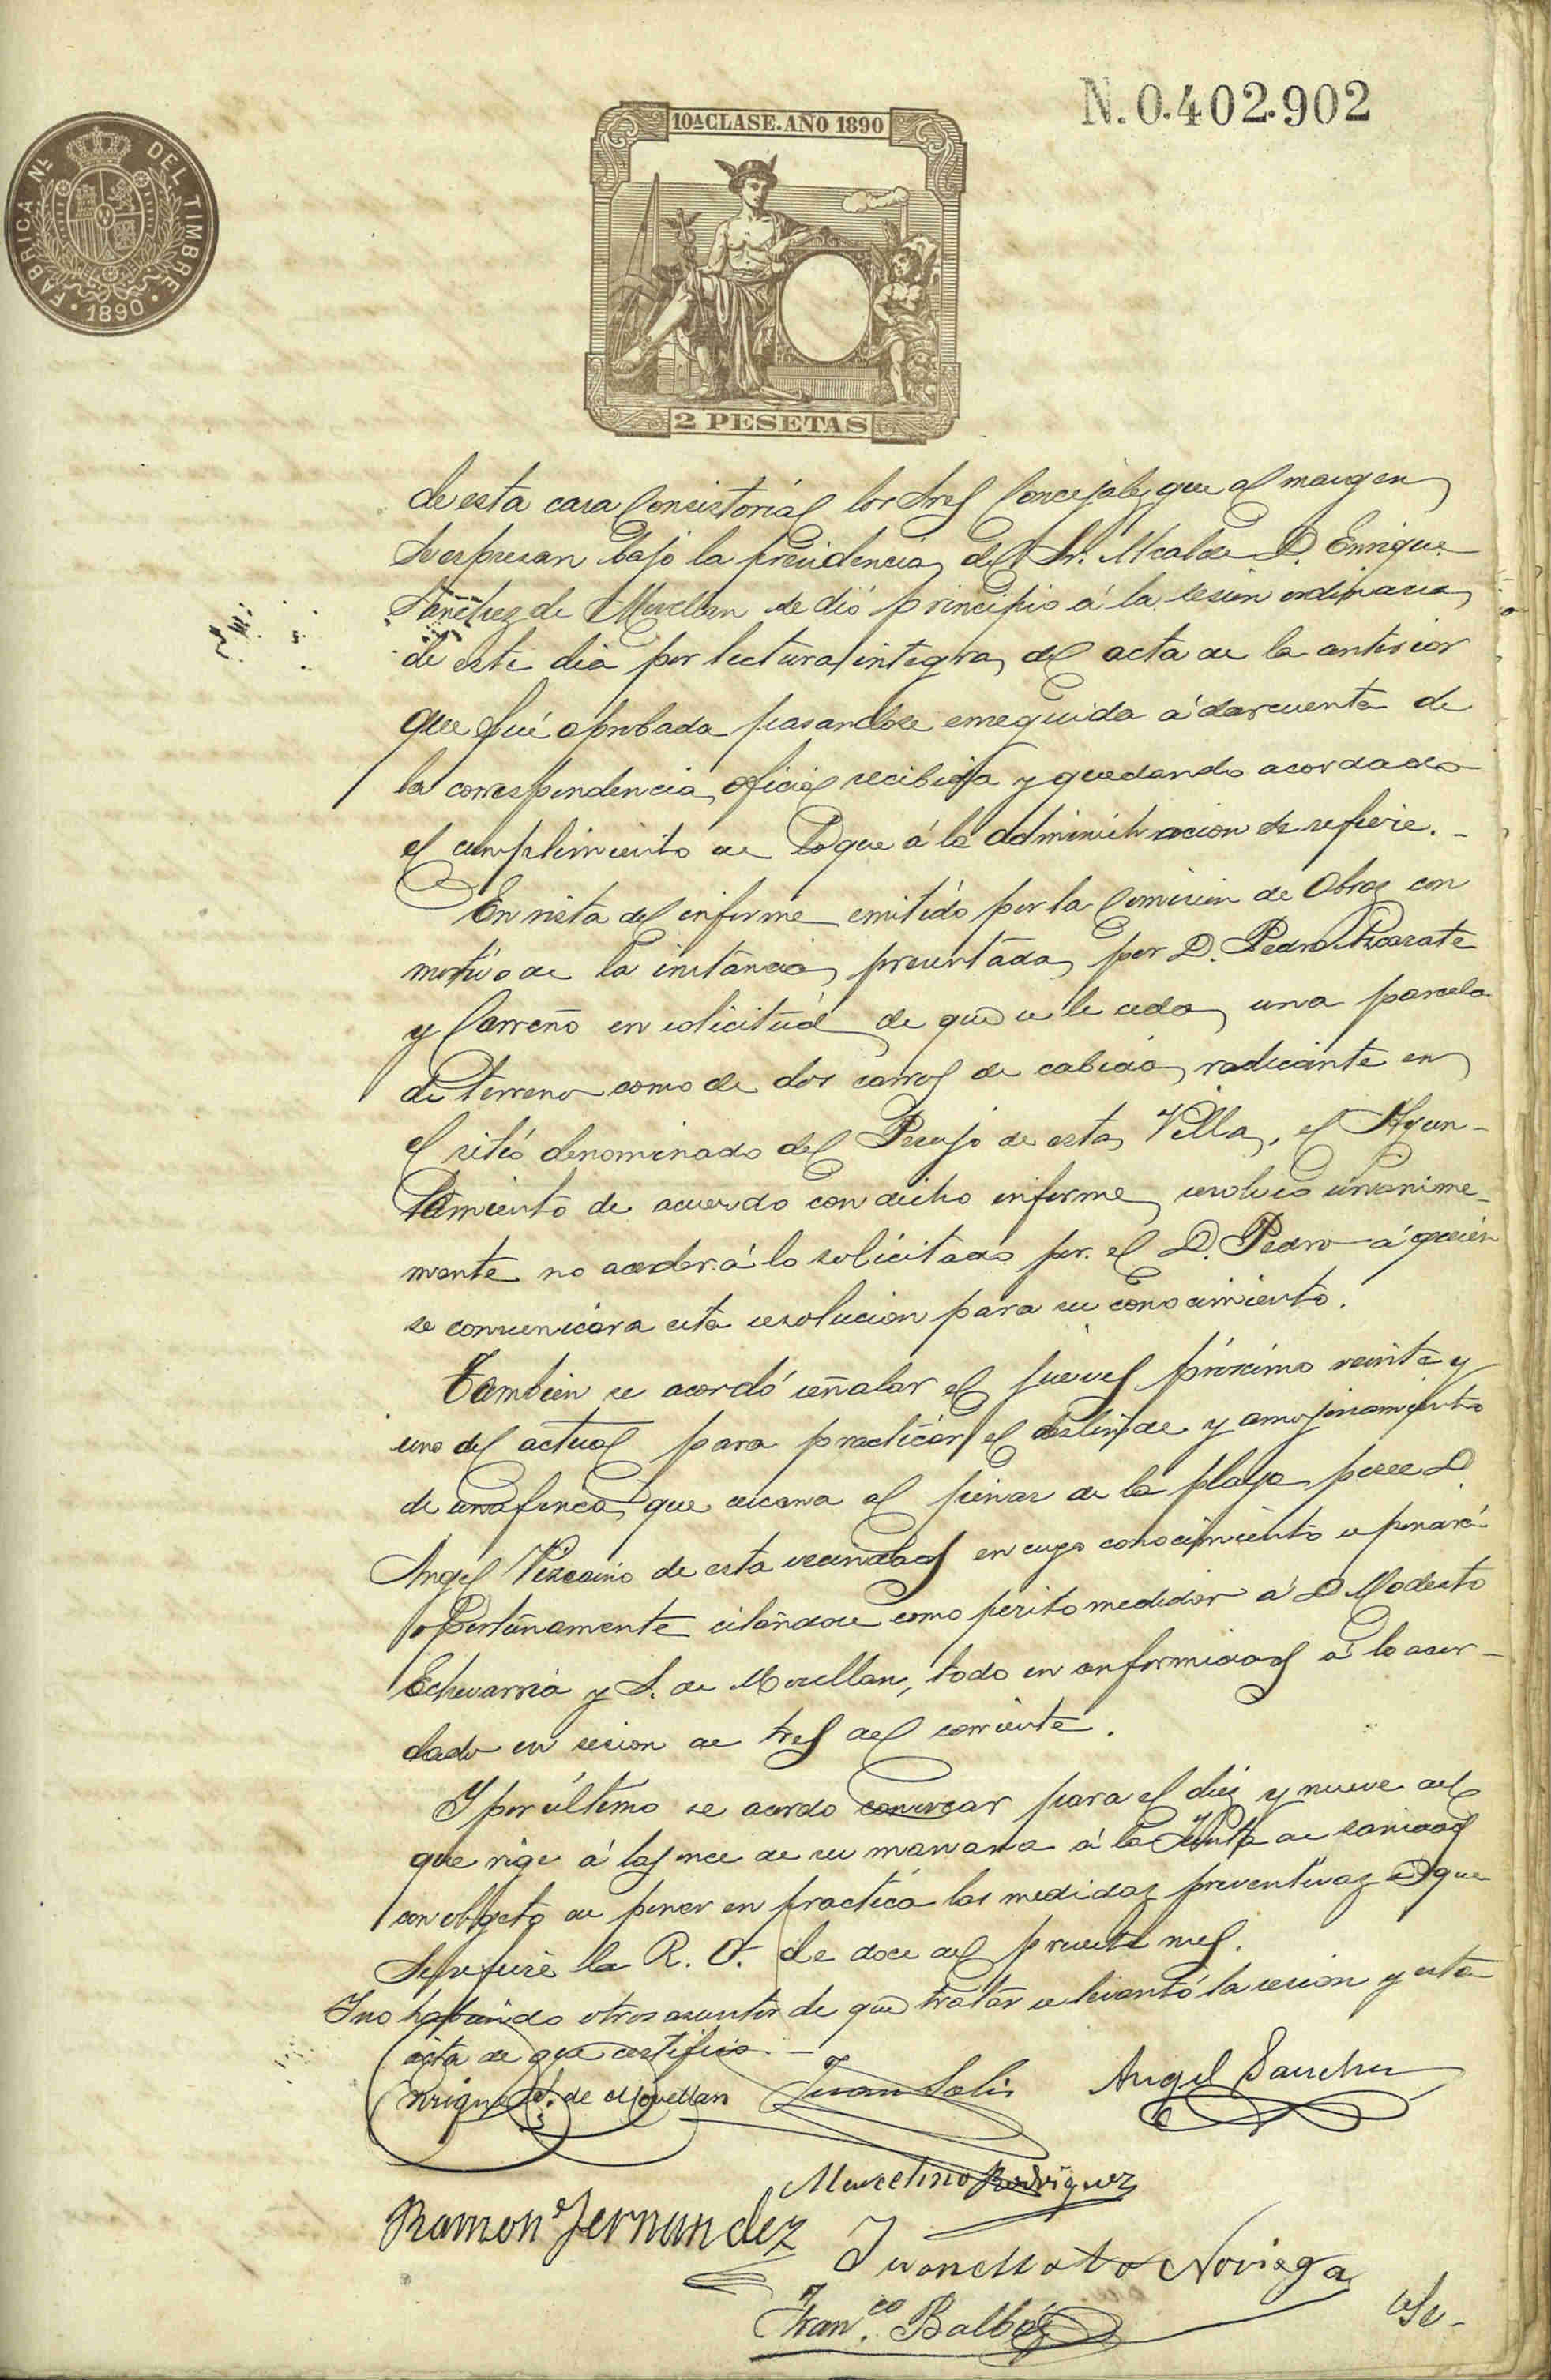 N.0.402.902
10ª CLASE. AÑO 1890
FÁBRICA NL. DEL TIMBRE
1890
2 PESETAS
de esta casa Consistorial los Sres Concejales que al margen
se espresan bajo la presidencia del Sr. Alcalde D. Enrique
Sanchez de Movellan se dió principio á la sesion ordinaria
de este dia por lectura integra del acta de la anterior
que fué aprobada pasandose enseguida á dar cuenta de
la correspondencia oficial recibida y quedando acordado
el cumplimiento de lo que á la administracion se refiere.
En vista del informe emitido por la Comision de Obras con
motivo de la instancia presentada por D. Pedro
y Carreño en solicitud de que se le ceda una parcela
de terreno como de dos carros de cabida, radicante en
el sitio denominado del de esta Villa, el Ayun-
tamiento de acuerdo con dicho informe resolvió unanime-
mente no acceder á lo solicitado por el D. Pedro á quien
se comunicara esta resolucion para su conocimiento.
Tambien se acordó señalar el jueves próximo veinte y
uno del actual para practicar el deslinde y amojonamiento
de una finca que cercana al pinar de la playa posee D.
Angel Vizcaino de esta vecindad en cuyo conocimiento se pondrá
oportunamente citandose como perito medidor á D. Modesto
Echevarria y S. de Movellan, todo en conformidad á lo acor-
dado en sesion de tres del corriente.
Y por último se acordo convocar para el diez y nueve del
que rige á las once de su mañana á la Junta de sanidad
con objeto de poner en practica las medidas preventivas á que
se refiere la R. O. de doce del presente mes.
Y no habiendo otros asuntos de que tratar se levantó la sesion y esta
acta de que certifico.
Enrique S. de Movellan Juan Solis Angel Sanchez
Marcelino Rodriguez
Ramon Fernandez
Juan Mata Noriega
Franco. Balbás